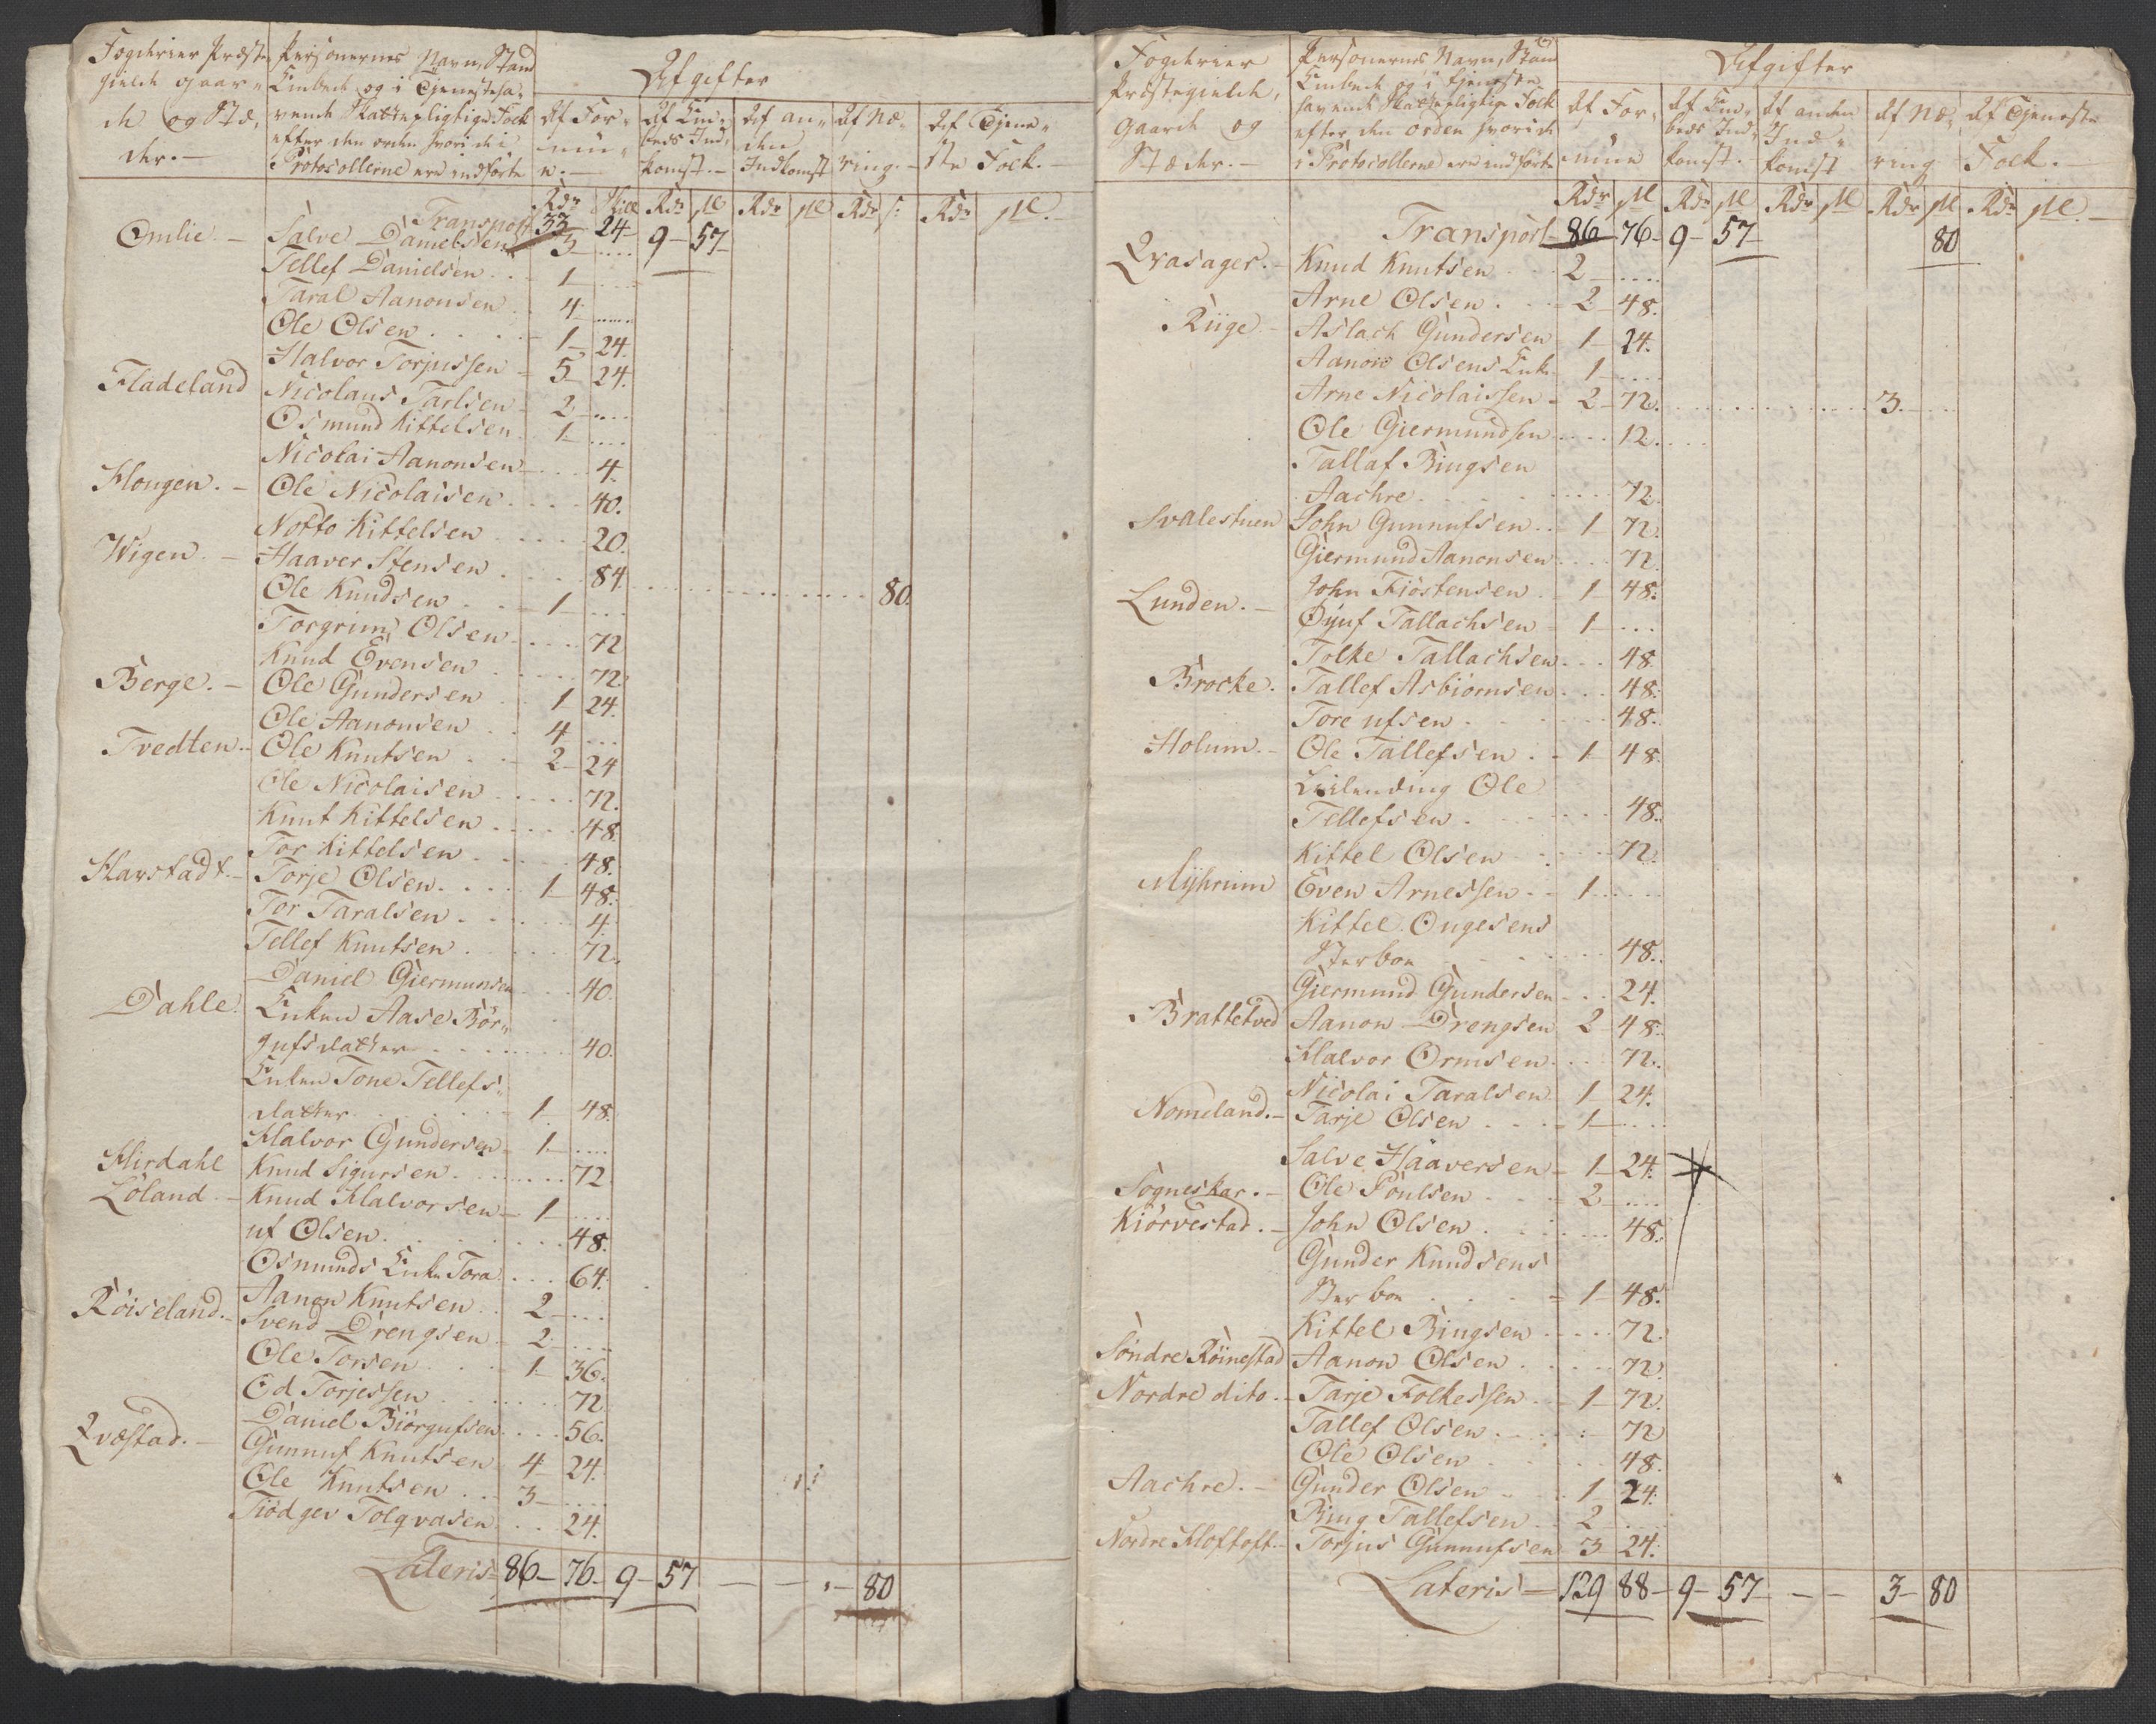 Fogderier Præste
gielde Gaar-
de og Stæ,
der. —
Personernes Navn, Stand
Embede og i Tjeneste ha,
vende Skattepligtige Folk
efter den orden hvori de i
Protocollerne ere indførte
Afgifter
Af For- mu- e. — Af Em- beds Ind- komst. — Af an- den Indkomst Af Næ- ring. — Af Tjene- ste Folk. —
Rdr Skill Rdr sk Rdr sk Rdr s: Rdr sk. —
Transport 33 24 9 57
Omlie. — Salve Danielsen 3
Tellef Danielsen 1
Taral Aanonsen 4
Ole Olsen 1 24.
Halvor Torjussen 5 24.
Fladeland Nicolaus Tarlsen 2
Osmund Kittelsen 1
Nicolai Aanonsen 4.
Hougen. — Ole Nicolaisen 40.
Notto Kittelsen 20.
Wigen. — Haaver Stensen 84. 80.
Ole Knudsen 1
Torgrim Olsen 72
Knud Evensen 72.
Berge. — Ole Gundersen 1 24.
Ole Aanonsen 4
Tvedten. — Ole Knutsen 2 24
Ole Nicolaisen 72.
Knut Kittelsen 48.
Tor Kittelsen 48.
Harstadt. — Torje Olsen 1 48.
Tor Taralsen 4.
Tellef Knutsen 72.
Daniel Giermunsen 40.
Dahle. Enken Aase Bör-
gufsdatter 40.
Enken Tone Tellefs-
datter 1 48.
Halvor Gundersen 1
Hirdahl Knud Sigursen 72.
Löland. — Knud Halvorsen 1
uf Olsen 48.
Osmunds Enke Tora 64.
Röiseland. — Aanon Knutsen 2
Svend Drengsen 2
Ole Torsen 1 36.
Ed Torjessen 72
Daniel Biörgufsen 56.
Qvæstad. — Gunnuf Knutsen 4 24.
Ole Knutsen 3
Tiödger Tolqvasen 24.
Lateris 86 76 9 57 — — 80
Fogderier
Præstegielde,
Gaarde og
Stæder. —
Personernes Navn, Stand
Embede og i Tjeneste
havende Skattepligtige Folk
efter den orden hvori de
i Protocollerne ere indførte
Afgifter
Af For- mue Af Em- beds Ind- komst. — Af anden Ind- komst Af Næ- ring Af Tjeneste Folk. —
Rdr sk Rdr sk Rdr sk Rdr sk Rdr sk. —
Transport 86 76 9 57 80
Qvasager. — Knud Knutsen 2
Arne Olsen 2 48.
Riige. — Aslach Gundersen 1 24.
Aanon Olsens Enke 1
Arne Nicolaissen 2 72. 3.
Ole Giermundsen 12.
Tallaf Bingsen
Aachre 72.
Svalestuen John Gunnufsen 1 72.
Giermund Aanonsen 72.
Lunden. — John Fiöstensen 1 48.
Öyuf Tallachsen 1
Tolke Tallachsen 48
Brocke. Tallef Asbiörnsen 48.
Tore ufsen 48.
Holum. — Ole Tallefsen 1 48.
Leilending Ole
Tellefsen 48.
Kittel Olsen 72.
Myhrum Even Arnessen 1
Kittel Ougesens
Sterboe 48.
Giermund Gundersen 24.
Brattetved Aanon Drengsen 2 48.
Halvor Ormsen 72.
Nicolai Taralsen 1 24.
Nomeland. — Tarje Olsen 1
Salve Haaversen 1 24.
Sogneskar. — Ole Poulsen 2
Kiörvestad. — John Olsen 48.
Gunder Knudsens
Sterboe 1 48.
Kittel Bingsen 72.
Söndre Röinestad Aanon Olsen 72.
Nordre dito. — Tarje Folkessen 1 72.
Tallef Olsen 72
Ole Olsen 48.
Aachre. — Gunder Olsen 1 24.
Bing Tallefsen 2
Nordre Hoftoft. — Torjus Gunnufsen 3 24.
Lateris 129 88 9 57 — — 3 80